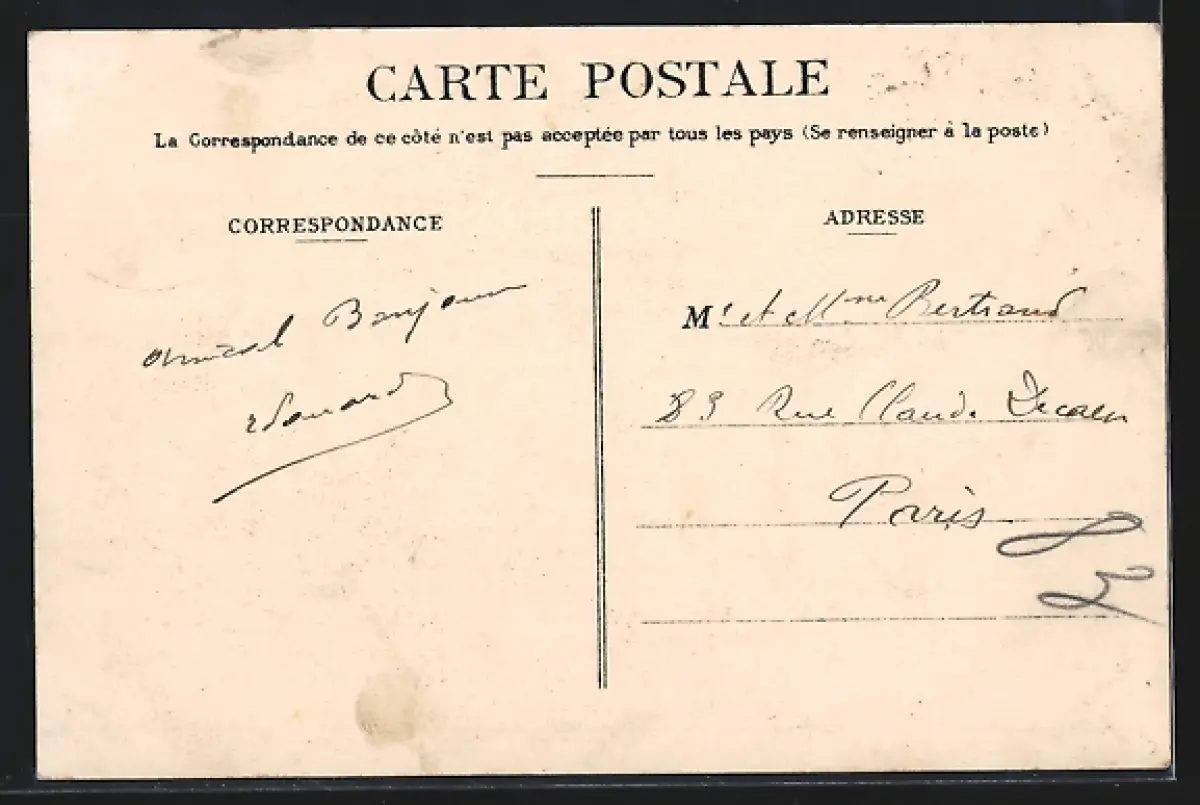 CARTE POSTALE
La Correspondance de ce côté n'est pas acceptée par tous les pays (Se renseigner à la poste)
CORRESPONDANCE
amical Bonjour
Edouard
ADRESSE
Mr et Mme Bertrand
83 Rue Claude Decaen
Paris